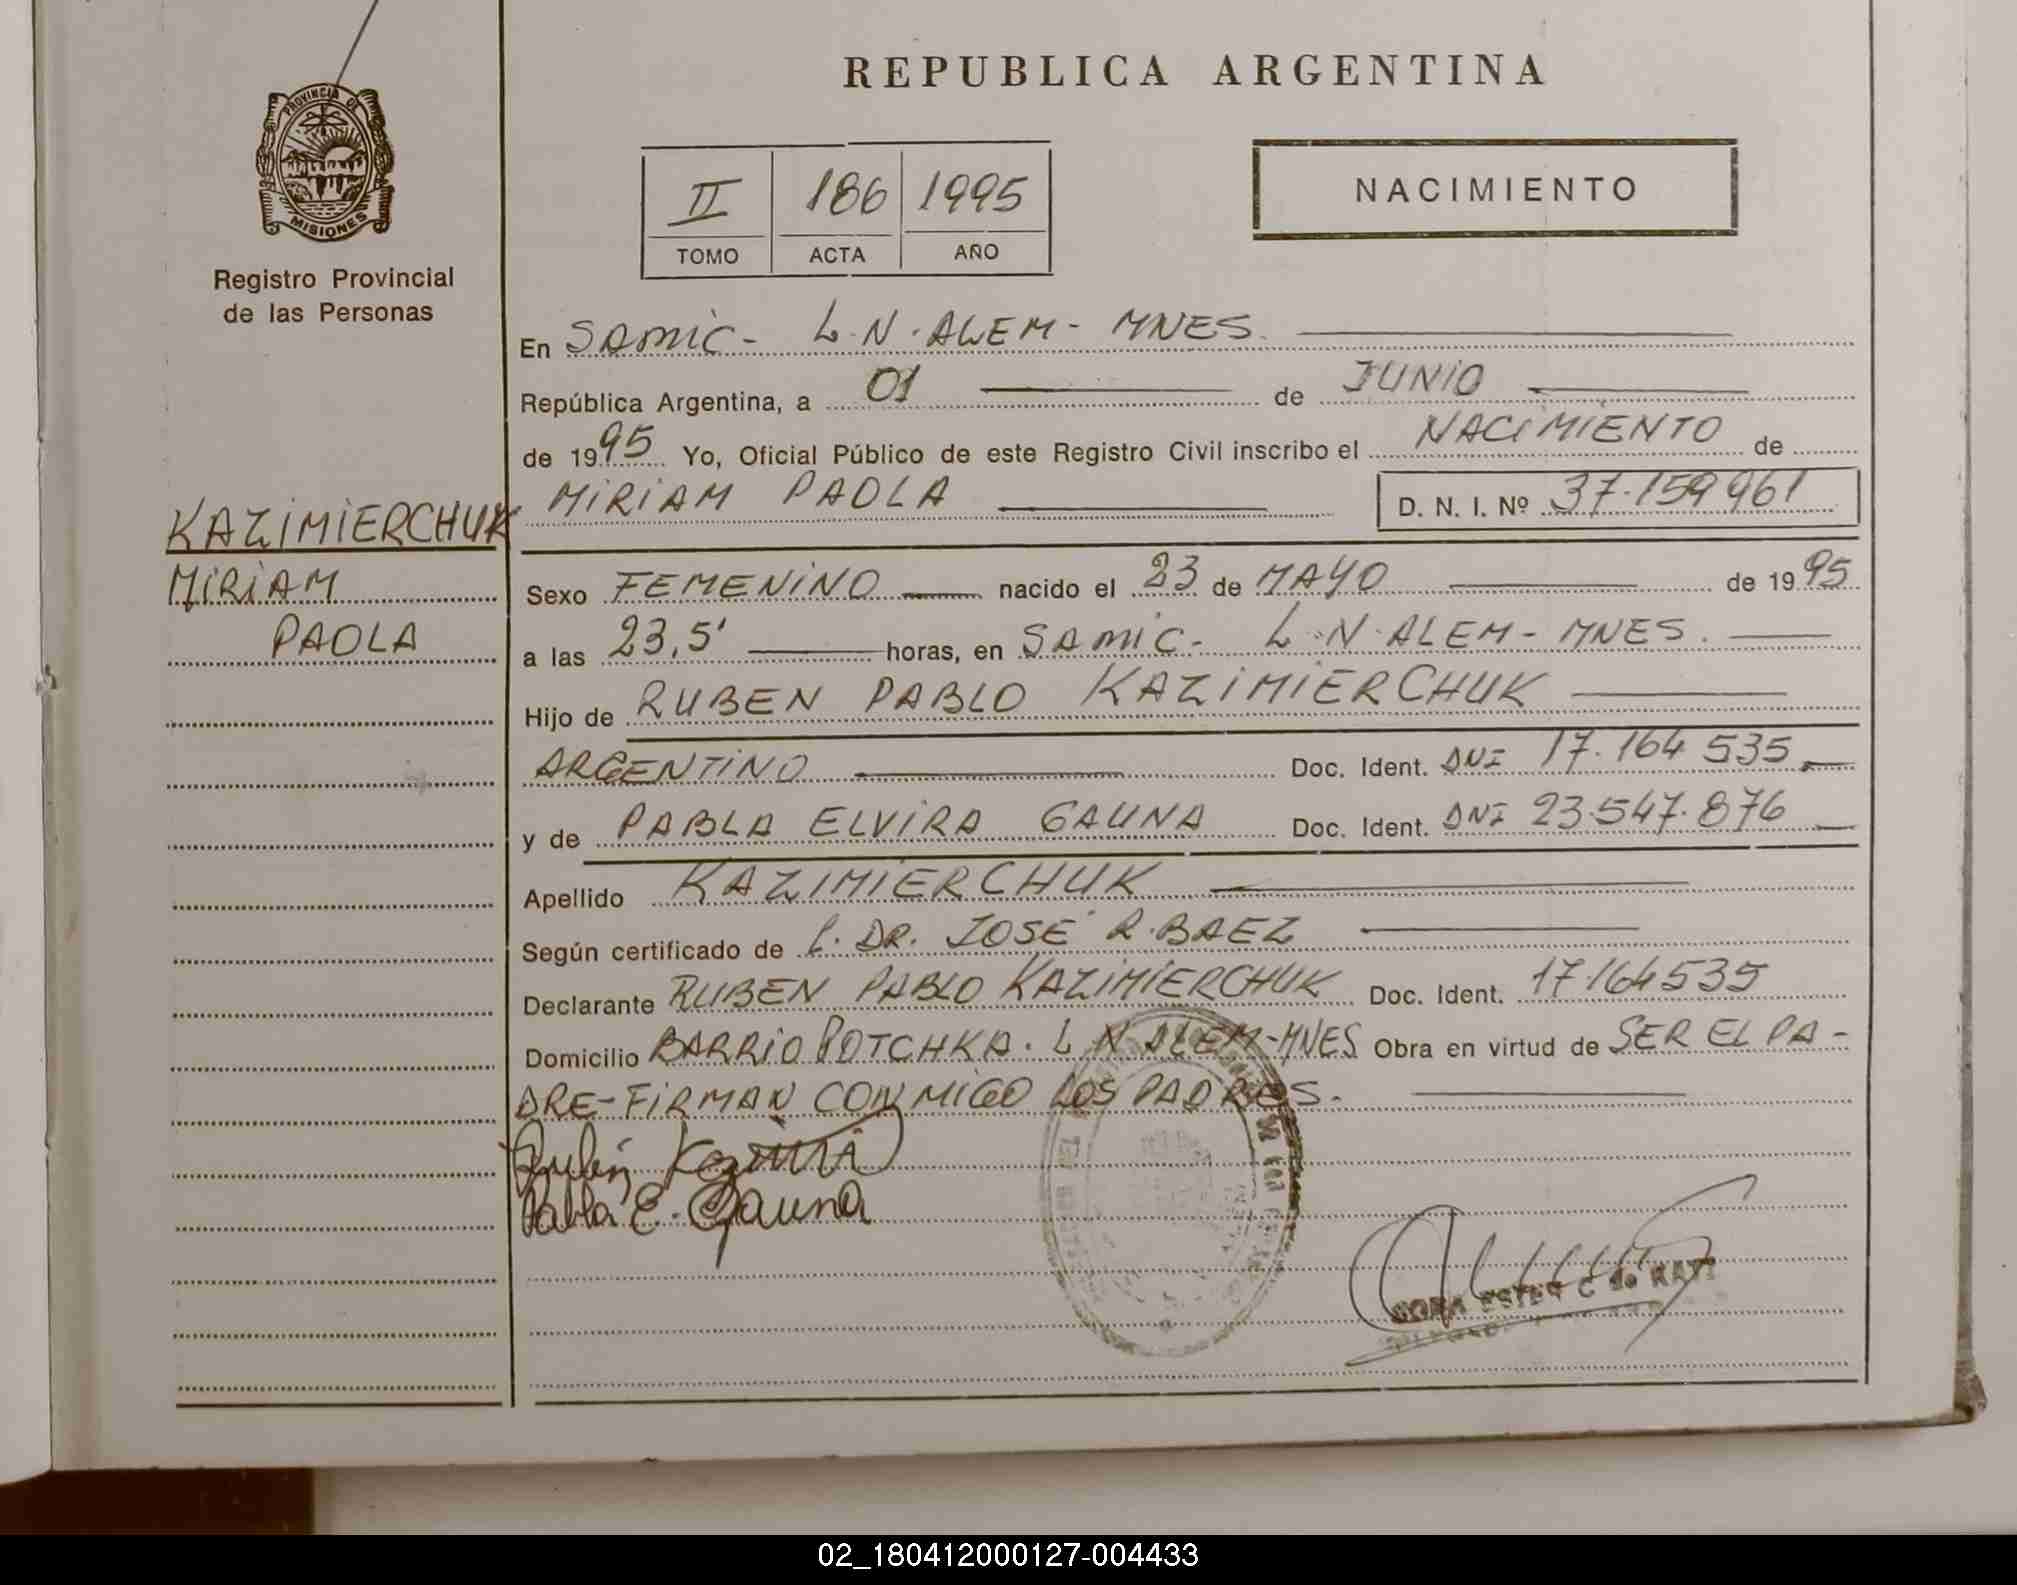 REPUBLICA ARGENTINA
PROVINCIA DE
MISIONES
Registro Provincial
de las Personas
II 186 1995
TOMO ACTA AÑO
NACIMIENTO
En SAMIC - L.N. ALEM - MNES.
República Argentina, a 01 de JUNIO
de 1995 Yo, Oficial Público de este Registro Civil inscribo el NACIMIENTO de
MIRIAM PAOLA D. N. I. Nº 37.159961
KAZIMIERCHUK
MIRIAM
PAOLA
Sexo FEMENINO nacido el 23 de MAYO de 1995
a las 23,5' horas, en SAMIC - L.N. ALEM - MNES.
Hijo de RUBEN PABLO KAZIMIERCHUK
ARGENTINO Doc. Ident. DNI 17.164 535
y de PABLA ELVIRA GAUNA Doc. Ident. DNI 23.547.876
Apellido KAZIMIERCHUK
Según certificado de DR. JOSÉ R. BAEZ
Declarante RUBEN PABLO KAZIMIERCHUK Doc. Ident. 17164535
Domicilio BARRIO POTCHKA. L N ALEM - MNES Obra en virtud de SER EL PA-
DRE - FIRMAN CONMIGO LOS PADRES.
Rubén
Pabla E. Gauna
ESTER C de
02_180412000127-004433